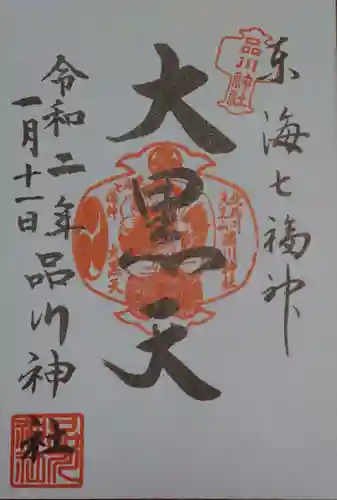 東海七福神
品川神社
大黒天
令和二年
一月十一日
品川神社